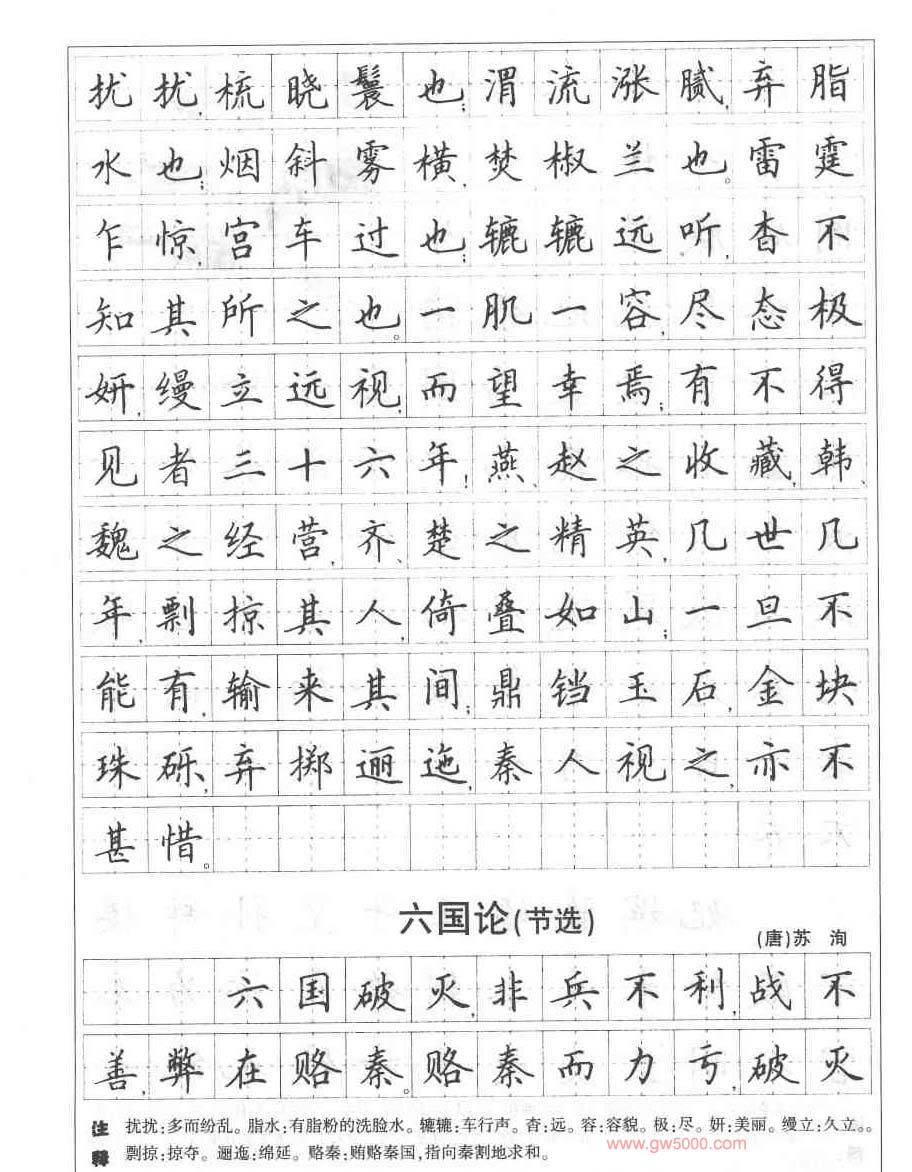 扰扰,梳晓鬟也;渭流涨腻,弃脂
水也;烟斜雾横,焚椒兰也。雷霆
乍惊,宫车过也;辘辘远听,杳不
知其所之也。一肌一容,尽态极
妍,缦立远视,而望幸焉;有不得
见者三十六年!燕、赵之收藏,韩、
魏之经营,齐、楚之精英,几世几
年,剽掠其人,倚叠如山;一旦不
能有,输来其间;鼎铛玉石,金块
珠砾,弃掷逦迤,秦人视之,亦不
甚惜。
六国论(节选)
(唐)苏 洵
六国破灭,非兵不利,战不
善,弊在赂秦。赂秦而力亏,破灭
注 扰扰:多而纷乱。脂水:有脂粉的洗脸水。辘辘:车行声。杳:远。容:容貌。极:尽。妍:美丽。缦立:久立。。
释 剽掠:掠夺。逦迤:绵延。赂秦:贿赂秦国,指向秦割地求和。
www.gw5000.com